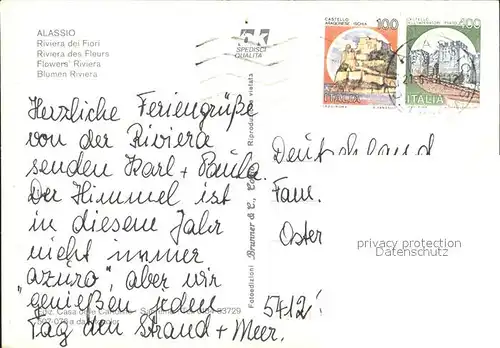 ALASSIO
Riviera dei Fiori
Riviera des Fleurs
Flowers' Riviera
Blumen Riviera
SPEDISCI
QUALITÀ
CASTELLO
ARAGONESE ISCHIA
100
ITALIA
400
ITALIA
Herzliche Feriengrüße
von der Riviera
senden Karl + Paula.
Der Himmel ist
in diesem Jahr
nicht immer
"azuro", aber wir
genießen jeden
Tag den Strand + Meer.
Riproduzione vietata
Fotoedizioni Brunner & C., Como
Deutschland
Fam.
Oster
5412
privacy protection
Datenschutz